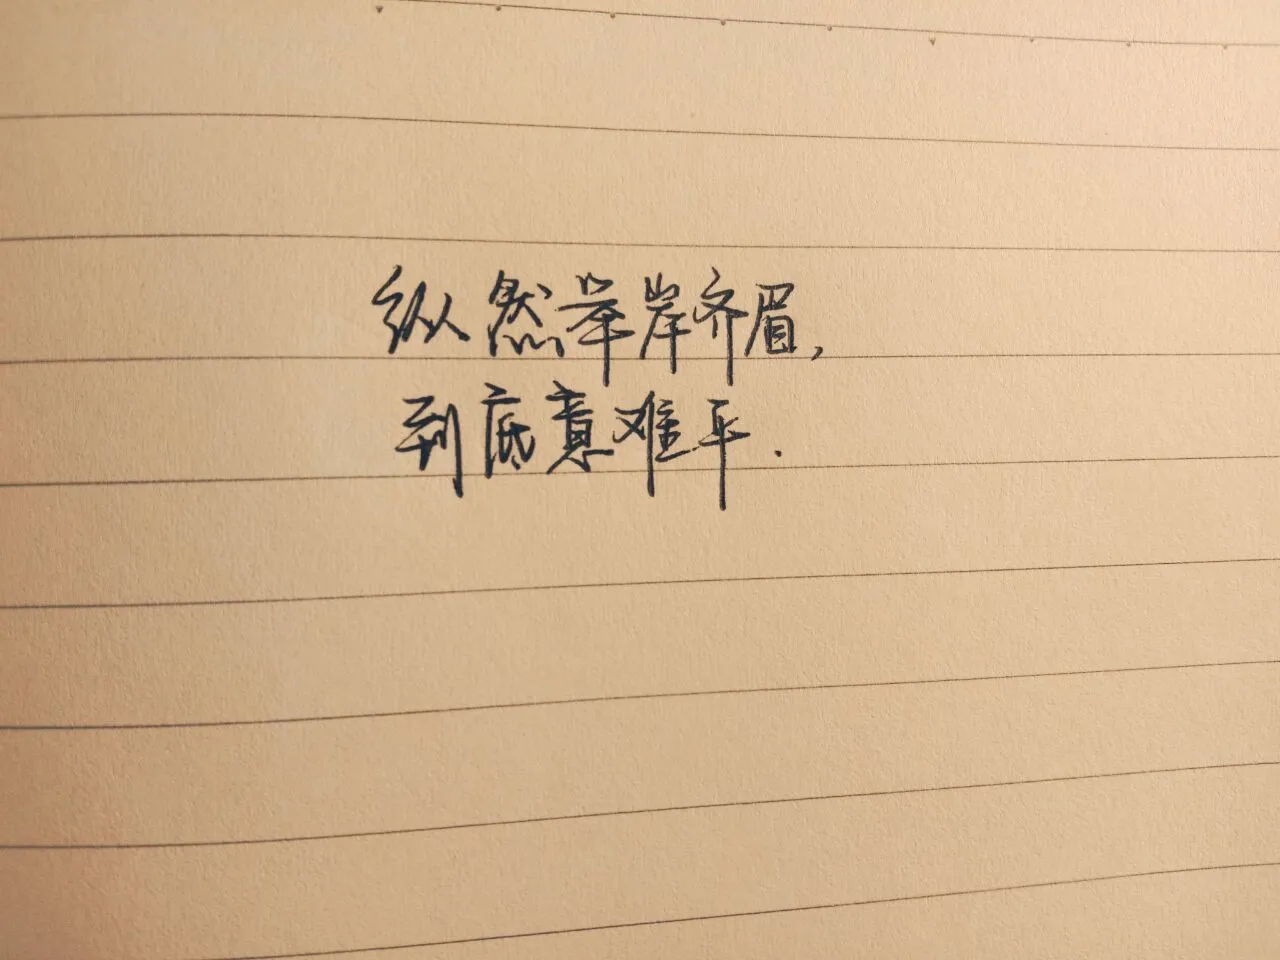 纵然举岸齐眉,
到底意难平.